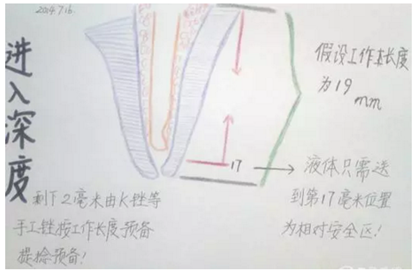 2014.7.16.
进入深度
假设工作长度
为19mm
17
液体只需送
到第17毫米位置
为相对安全区!
剩下2毫米由K锉等
手工锉按工作长度预备
提拉预备!